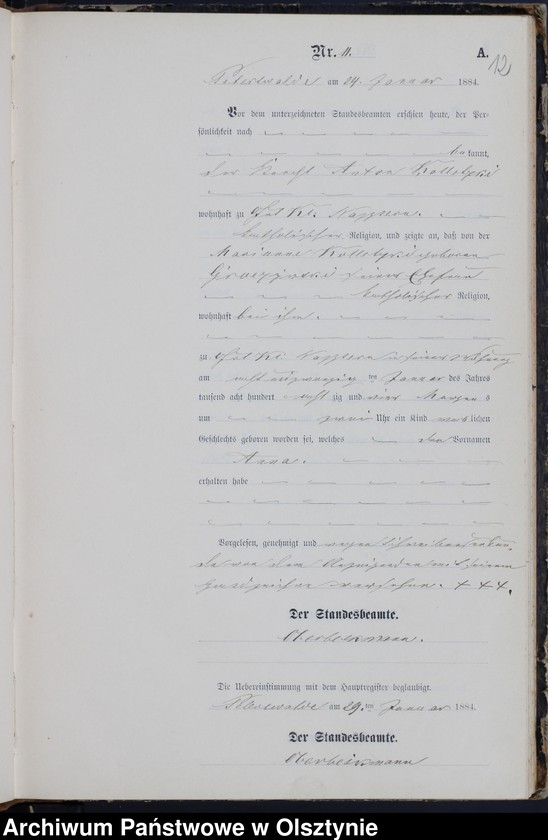 Nr. 11.
A.
12
Peterswalde am 29. Januar 1884.
Vor dem unterzeichneten Standesbeamten erschien heute, der Per-
sönlichkeit nach
bekannt,
der Knecht Anton
wohnhaft zu Gut Kl.
katholischer Religion, und zeigte an, daß von der
Marianne geborenen
seiner Ehefrau
katholischer Religion,
wohnhaft bei ihm
zu Gut Kl. in seiner Wohnung
am acht und zwanzig ten Januar des Jahres
tausend acht hundert acht zig und vier Morgens
um zwei Uhr ein Kind weiblichen
Geschlechts geboren worden sei, welches den Vornamen
Anna.
erhalten habe
Vorgelesen, genehmigt und wegen
von dem mit seinem
Handzeichen versehen. + + +.
Der Standesbeamte.
Oberbeckmann.
Die Uebereinstimmung mit dem Hauptregister beglaubigt.
Peterswalde am 29. ten Januar 1884.
Der Standesbeamte.
Oberbeckmann
Archiwum Państwowe w Olsztynie